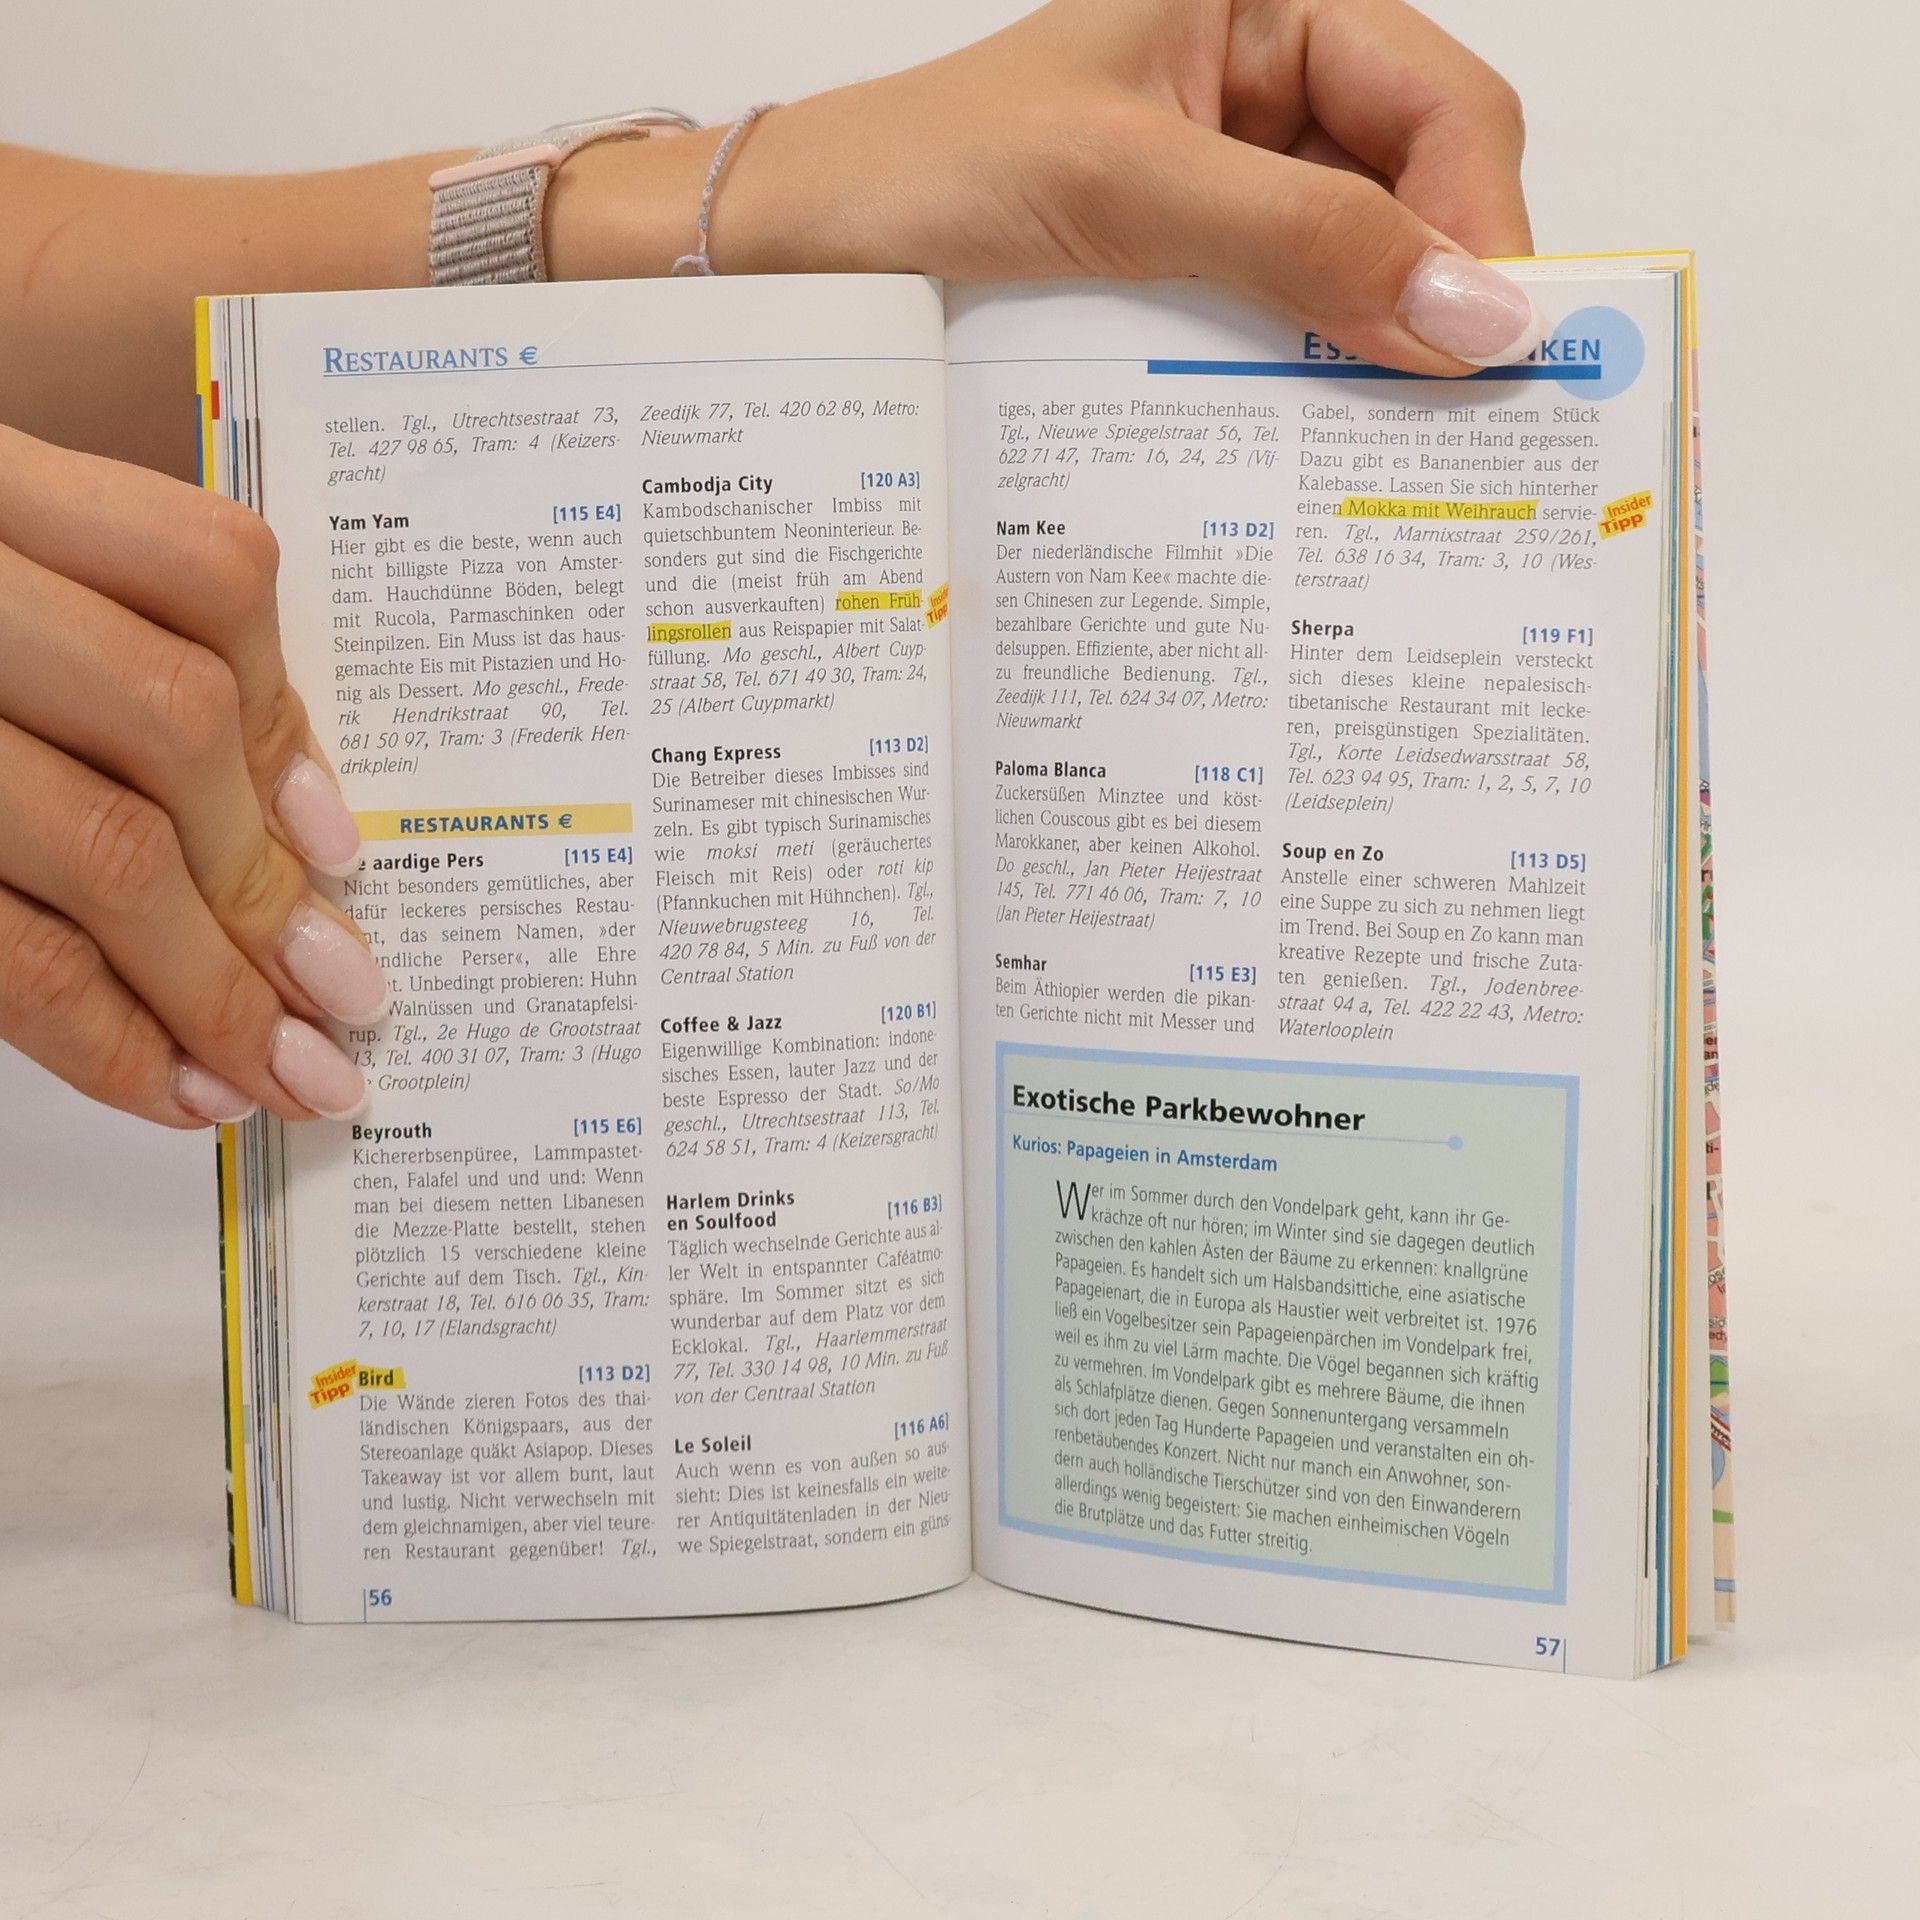 RESTAURANTS €
stellen. Tgl., Utrechtsestraat 73,
Tel. 427 98 65, Tram: 4 (Keizers-
gracht)
Yam Yam [115 E4]
Hier gibt es die beste, wenn auch
nicht billigste Pizza von Amster-
dam. Hauchdünne Böden, belegt
mit Rucola, Parmaschinken oder
Steinpilzen. Ein Muss ist das haus-
gemachte Eis mit Pistazien und Ho-
nig als Dessert. Mo geschl., Frede-
rik Hendrikstraat 90, Tel.
681 50 97, Tram: 3 (Frederik Hen-
drikplein)
RESTAURANTS €
aardige Pers [115 E4]
Nicht besonders gemütliches, aber
dafür leckeres persisches Restau-
das seinem Namen, »der
Perser«, alle Ehre
Unbedingt probieren: Huhn
Walnüssen und Granatapfelsi-
rup. Tgl., 2e Hugo de Grootstraat
13, Tel. 400 31 07, Tram: 3 (Hugo
Grootplein)
Beyrouth [115 E6]
Kichererbsenpüree, Lammpastet-
chen, Falafel und und und: Wenn
man bei diesem netten Libanesen
die Mezze-Platte bestellt, stehen
plötzlich 15 verschiedene kleine
Gerichte auf dem Tisch. Tgl., Kin-
kerstraat 18, Tel. 616 06 35, Tram:
7, 10, 17 (Elandsgracht)
Insider Tipp
Bird [113 D2]
Die Wände zieren Fotos des thai-
ländischen Königspaars, aus der
Stereoanlage quäkt Asiapop. Dieses
Takeaway ist vor allem bunt, laut
und lustig. Nicht verwechseln mit
dem gleichnamigen, aber viel teure-
ren Restaurant gegenüber! Tgl.,
Zeedijk 77, Tel. 420 62 89, Metro:
Nieuwmarkt
Cambodja City [120 A3]
Kambodschanischer Imbiss mit
quietschbuntem Neoninterieur. Be-
sonders gut sind die Fischgerichte
und die (meist früh am Abend
schon ausverkauften) rohen Früh-
lingsrollen aus Reispapier mit Salat-
füllung. Mo geschl., Albert Cuyp-
straat 58, Tel. 671 49 30, Tram: 24,
25 (Albert Cuypmarkt)
Insider Tipp
Chang Express [113 D2]
Die Betreiber dieses Imbisses sind
Surinameser mit chinesischen Wur-
zeln. Es gibt typisch Surinamisches
wie moksi meti (geräuchertes
Fleisch mit Reis) oder roti kip
(Pfannkuchen mit Hühnchen). Tgl.,
Nieuwebrugsteeg 16, Tel.
420 78 84, 5 Min. zu Fuß von der
Centraal Station
Coffee & Jazz [120 B1]
Eigenwillige Kombination: indone-
sisches Essen, lauter Jazz und der
beste Espresso der Stadt. So/Mo
geschl., Utrechtsestraat 113, Tel.
624 58 51, Tram: 4 (Keizersgracht)
Harlem Drinks
en Soulfood [116 B3]
Täglich wechselnde Gerichte aus al-
ler Welt in entspannter Caféatmo-
sphäre. Im Sommer sitzt es sich
wunderbar auf dem Platz vor dem
Ecklokal. Tgl., Haarlemmerstraat
77, Tel. 330 14 98, 10 Min. zu Fuß
von der Centraal Station
Le Soleil [116 A6]
Auch wenn es von außen so aus-
sieht: Dies ist keinesfalls ein weite-
rer Antiquitätenladen in der Nieu-
we Spiegelstraat, sondern ein güns-
56
tiges, aber gutes Pfannkuchenhaus.
Tgl., Nieuwe Spiegelstraat 56, Tel.
622 71 47, Tram: 16, 24, 25 (Vij-
zelgracht)
Nam Kee [113 D2]
Der niederländische Filmhit »Die
Austern von Nam Kee« machte die-
sen Chinesen zur Legende. Simple,
bezahlbare Gerichte und gute Nu-
delsuppen. Effiziente, aber nicht all-
zu freundliche Bedienung. Tgl.,
Zeedijk 111, Tel. 624 34 07, Metro:
Nieuwmarkt
Paloma Blanca [118 C1]
Zuckersüßen Minztee und köst-
lichen Couscous gibt es bei diesem
Marokkaner, aber keinen Alkohol.
Do geschl., Jan Pieter Heijestraat
145, Tel. 771 46 06, Tram: 7, 10
(Jan Pieter Heijestraat)
Semhar [115 E3]
Beim Äthiopier werden die pikan-
ten Gerichte nicht mit Messer und
Gabel, sondern mit einem Stück
Pfannkuchen in der Hand gegessen.
Dazu gibt es Bananenbier aus der
Kalebasse. Lassen Sie sich hinterher
einen Mokka mit Weihrauch servie-
ren. Tgl., Marnixstraat 259/261,
Tel. 638 16 34, Tram: 3, 10 (Wes-
terstraat)
Insider Tipp
Sherpa [119 F1]
Hinter dem Leidseplein versteckt
sich dieses kleine nepalesisch-
tibetanische Restaurant mit lecke-
ren, preisgünstigen Spezialitäten.
Tgl., Korte Leidsedwarsstraat 58,
Tel. 623 94 95, Tram: 1, 2, 5, 7, 10
(Leidseplein)
Soup en Zo [113 D5]
Anstelle einer schweren Mahlzeit
eine Suppe zu sich zu nehmen liegt
im Trend. Bei Soup en Zo kann man
kreative Rezepte und frische Zuta-
ten genießen. Tgl., Jodenbree-
straat 94 a, Tel. 422 22 43, Metro:
Waterlooplein
Exotische Parkbewohner
Kurios: Papageien in Amsterdam
Wer im Sommer durch den Vondelpark geht, kann ihr Ge-
krächze oft nur hören; im Winter sind sie dagegen deutlich
zwischen den kahlen Ästen der Bäume zu erkennen: knallgrüne
Papageien. Es handelt sich um Halsbandsittiche, eine asiatische
Papageienart, die in Europa als Haustier weit verbreitet ist. 1976
ließ ein Vogelbesitzer sein Papageienpärchen im Vondelpark frei,
weil es ihm zu viel Lärm machte. Die Vögel begannen sich kräftig
zu vermehren. Im Vondelpark gibt es mehrere Bäume, die ihnen
als Schlafplätze dienen. Gegen Sonnenuntergang versammeln
sich dort jeden Tag Hunderte Papageien und veranstalten ein oh-
renbetäubendes Konzert. Nicht nur manch ein Anwohner, son-
dern auch holländische Tierschützer sind von den Einwanderern
allerdings wenig begeistert: Sie machen einheimischen Vögeln
die Brutplätze und das Futter streitig.
57